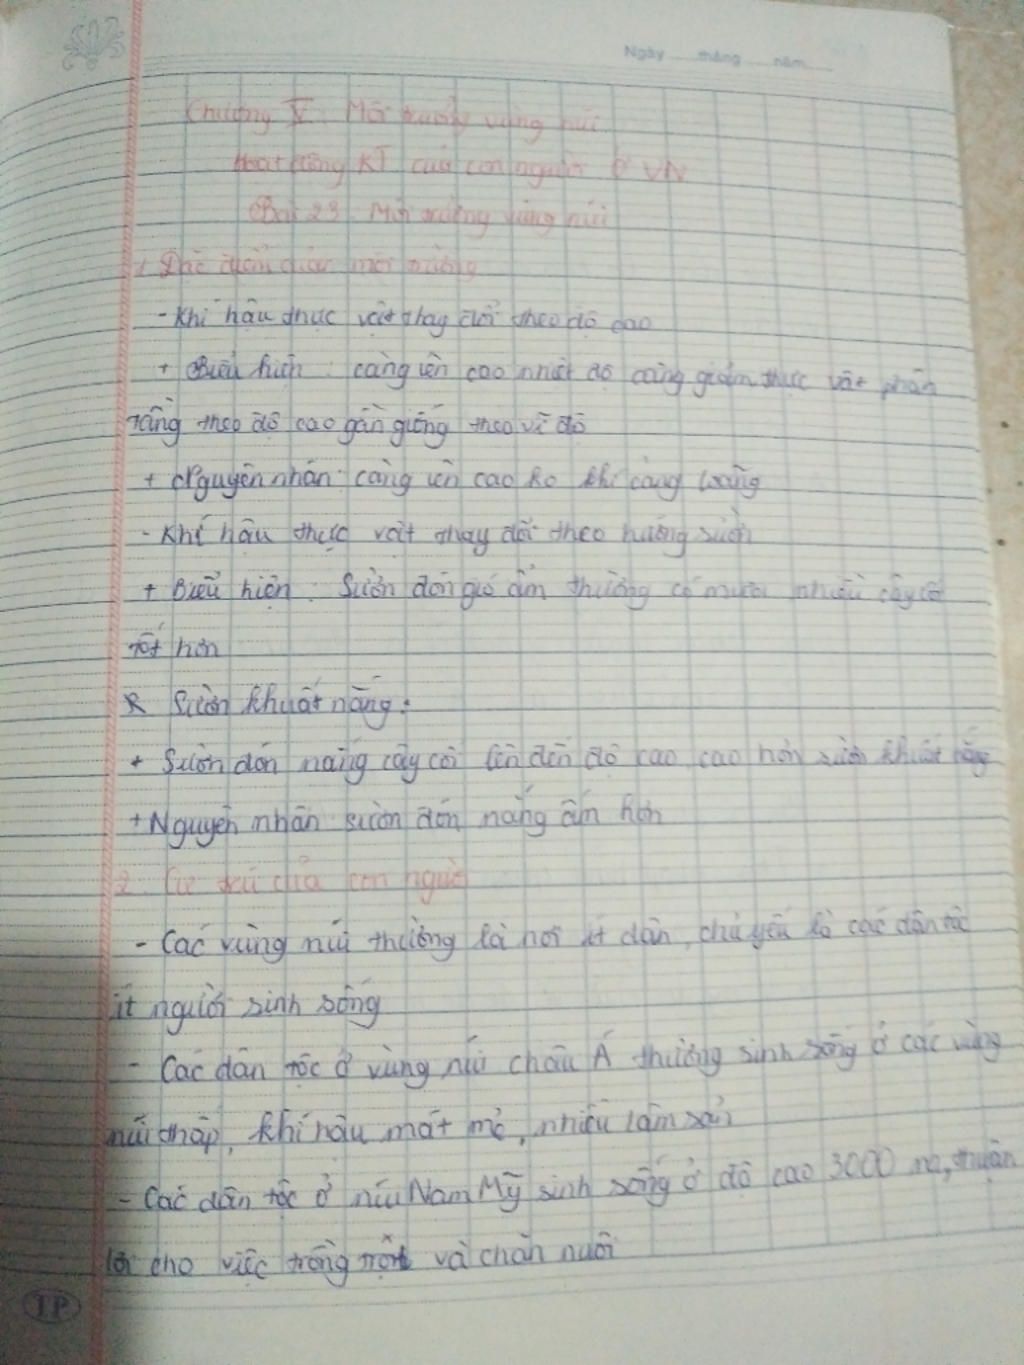 Ngày tháng năm
Chương V: Môi trường vùng núi
Hoạt động KT của con người ở VN
Bài 23. Môi trường vùng núi
1. Đặc điểm của môi trường
- Khí hậu thực vật thay đổi theo độ cao
+ Biểu hiện: càng lên cao nhiệt độ càng giảm, thực vật phân
tầng theo độ cao gần giống theo vĩ độ
+ Nguyên nhân: càng lên cao ko khí càng loãng
- Khí hậu thực vật thay đổi theo hướng sườn
+ Biểu hiện: Sườn đón gió ẩm thường có mưa nhiều cây cối
tốt hơn
* Sườn khuất nắng:
+ Sườn đón nắng cây cối lên đến độ cao cao hơn sườn khuất nắng
+ Nguyên nhân sườn đón nắng ấm hơn
2. Cư trú của con người
- Các vùng núi thường là nơi ít dân, chủ yếu là các dân tộc
ít người sinh sống
- Các dân tộc ở vùng núi châu Á thường sinh sống ở các vùng
núi thấp, khí hậu mát mẻ, nhiều lâm sản
- Các dân tộc ở núi Nam Mỹ sinh sống ở độ cao 3000 m, thuận
lợi cho việc trồng trọt và chăn nuôi
TP